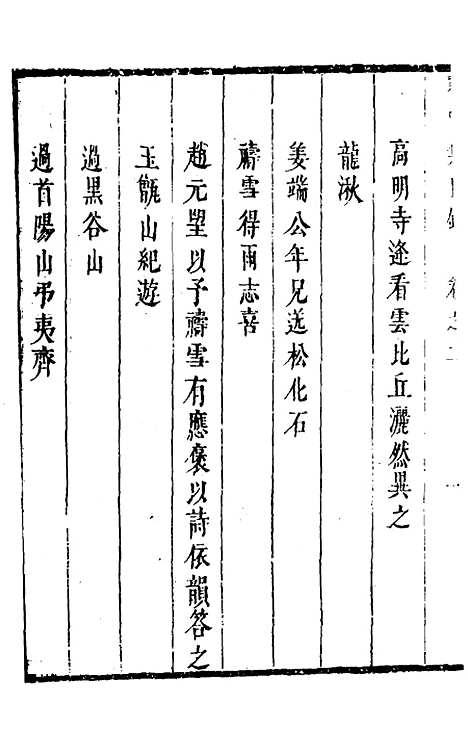 高明寺逢看雲比丘灑然異之
龍湫
姜端公年兄送松化石
禱雪得雨志喜
趙元朢以予禱雪有應褒以詩依韻答之
玉甑山紀遊
過黑谷山
過首陽山弔夷齊